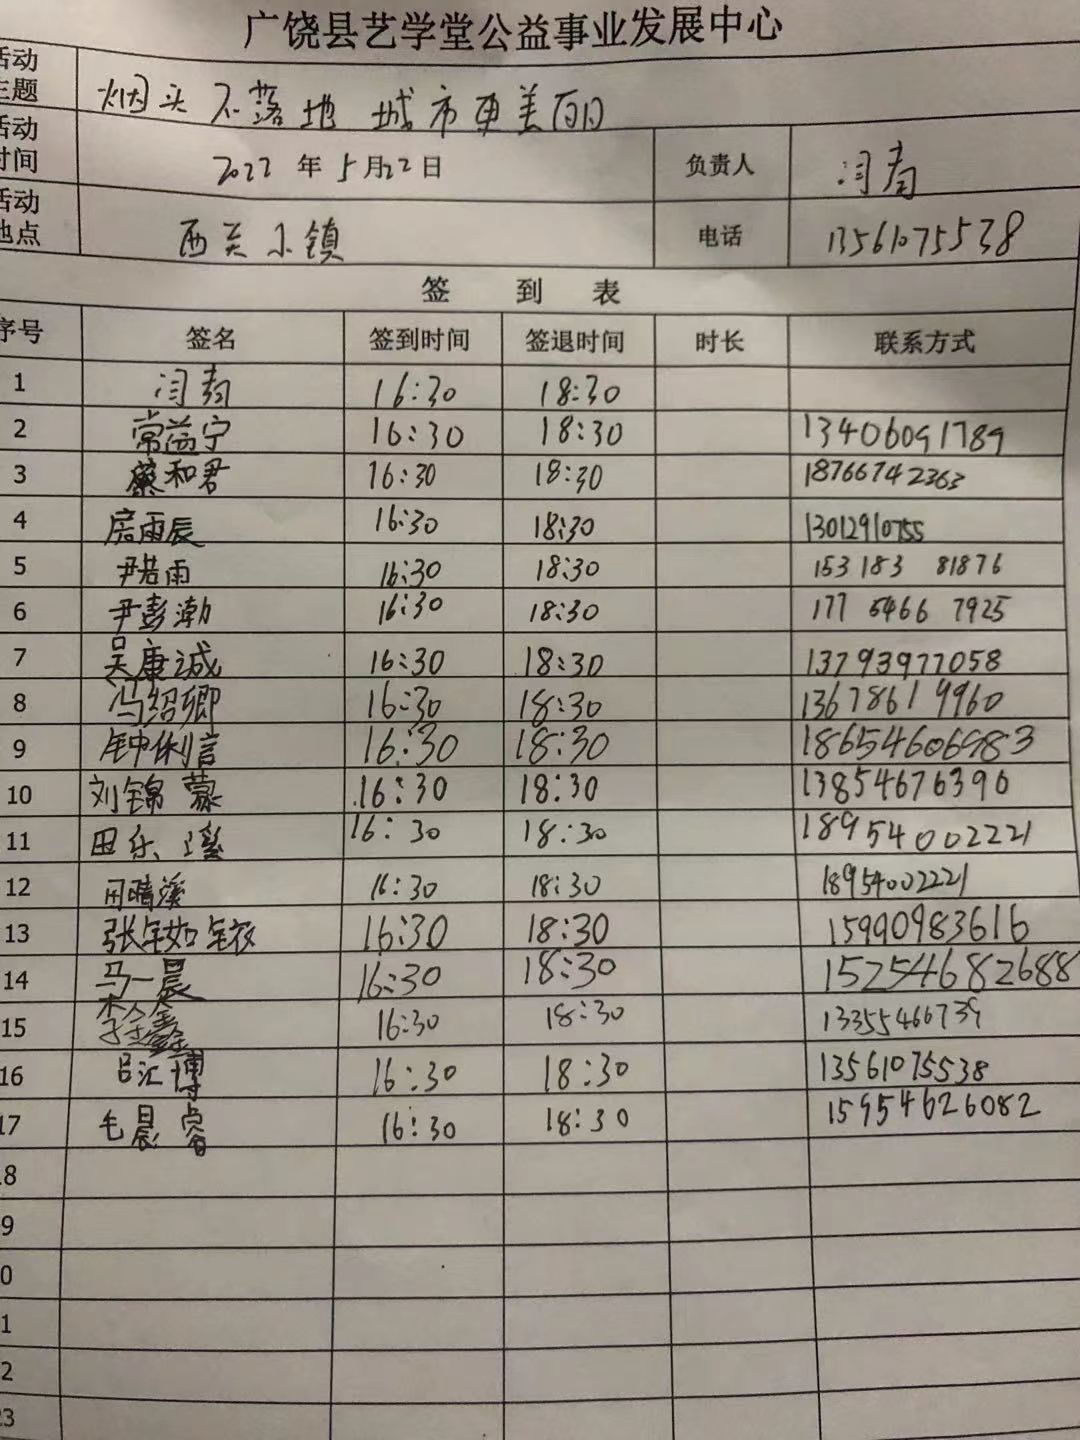 广饶县艺学堂公益事业发展中心
活动主题 烟头不落地 城市更美丽
活动时间 2022年5月22日 负责人 闫寿
活动地点 西关小镇 电话 13561075538
签 到 表
序号 签名 签到时间 签退时间 时长 联系方式
1 闫寿 16:30 18:30
2 常益宁 16:30 18:30 13406091789
3 蔡和君 16:30 18:30 18766742363
4 房雨辰 16:30 18:30 13012910755
5 尹若雨 16:30 18:30 153 183 81876
6 尹彭瀚 16:30 18:30 177 5466 7925
7 吴康诚 16:30 18:30 13793977058
8 冯绍卿 16:30 18:30 13678619960
9 钟俐言 16:30 18:30 18654606983
10 刘锦蒙 16:30 18:30 13854676390
11 田乐瑶 16:30 18:30 18954002221
12 田晴溪 16:30 18:30 18954002221
13 张 16:30 18:30 15990983616
14 马一晨 16:30 18:30 15254682688
15 李鑫 16:30 18:30 13355466739
16 吕汇博 16:30 18:30 13561075538
17 毛晨睿 16:30 18:30 15954626082
8
9
0
1
2
23